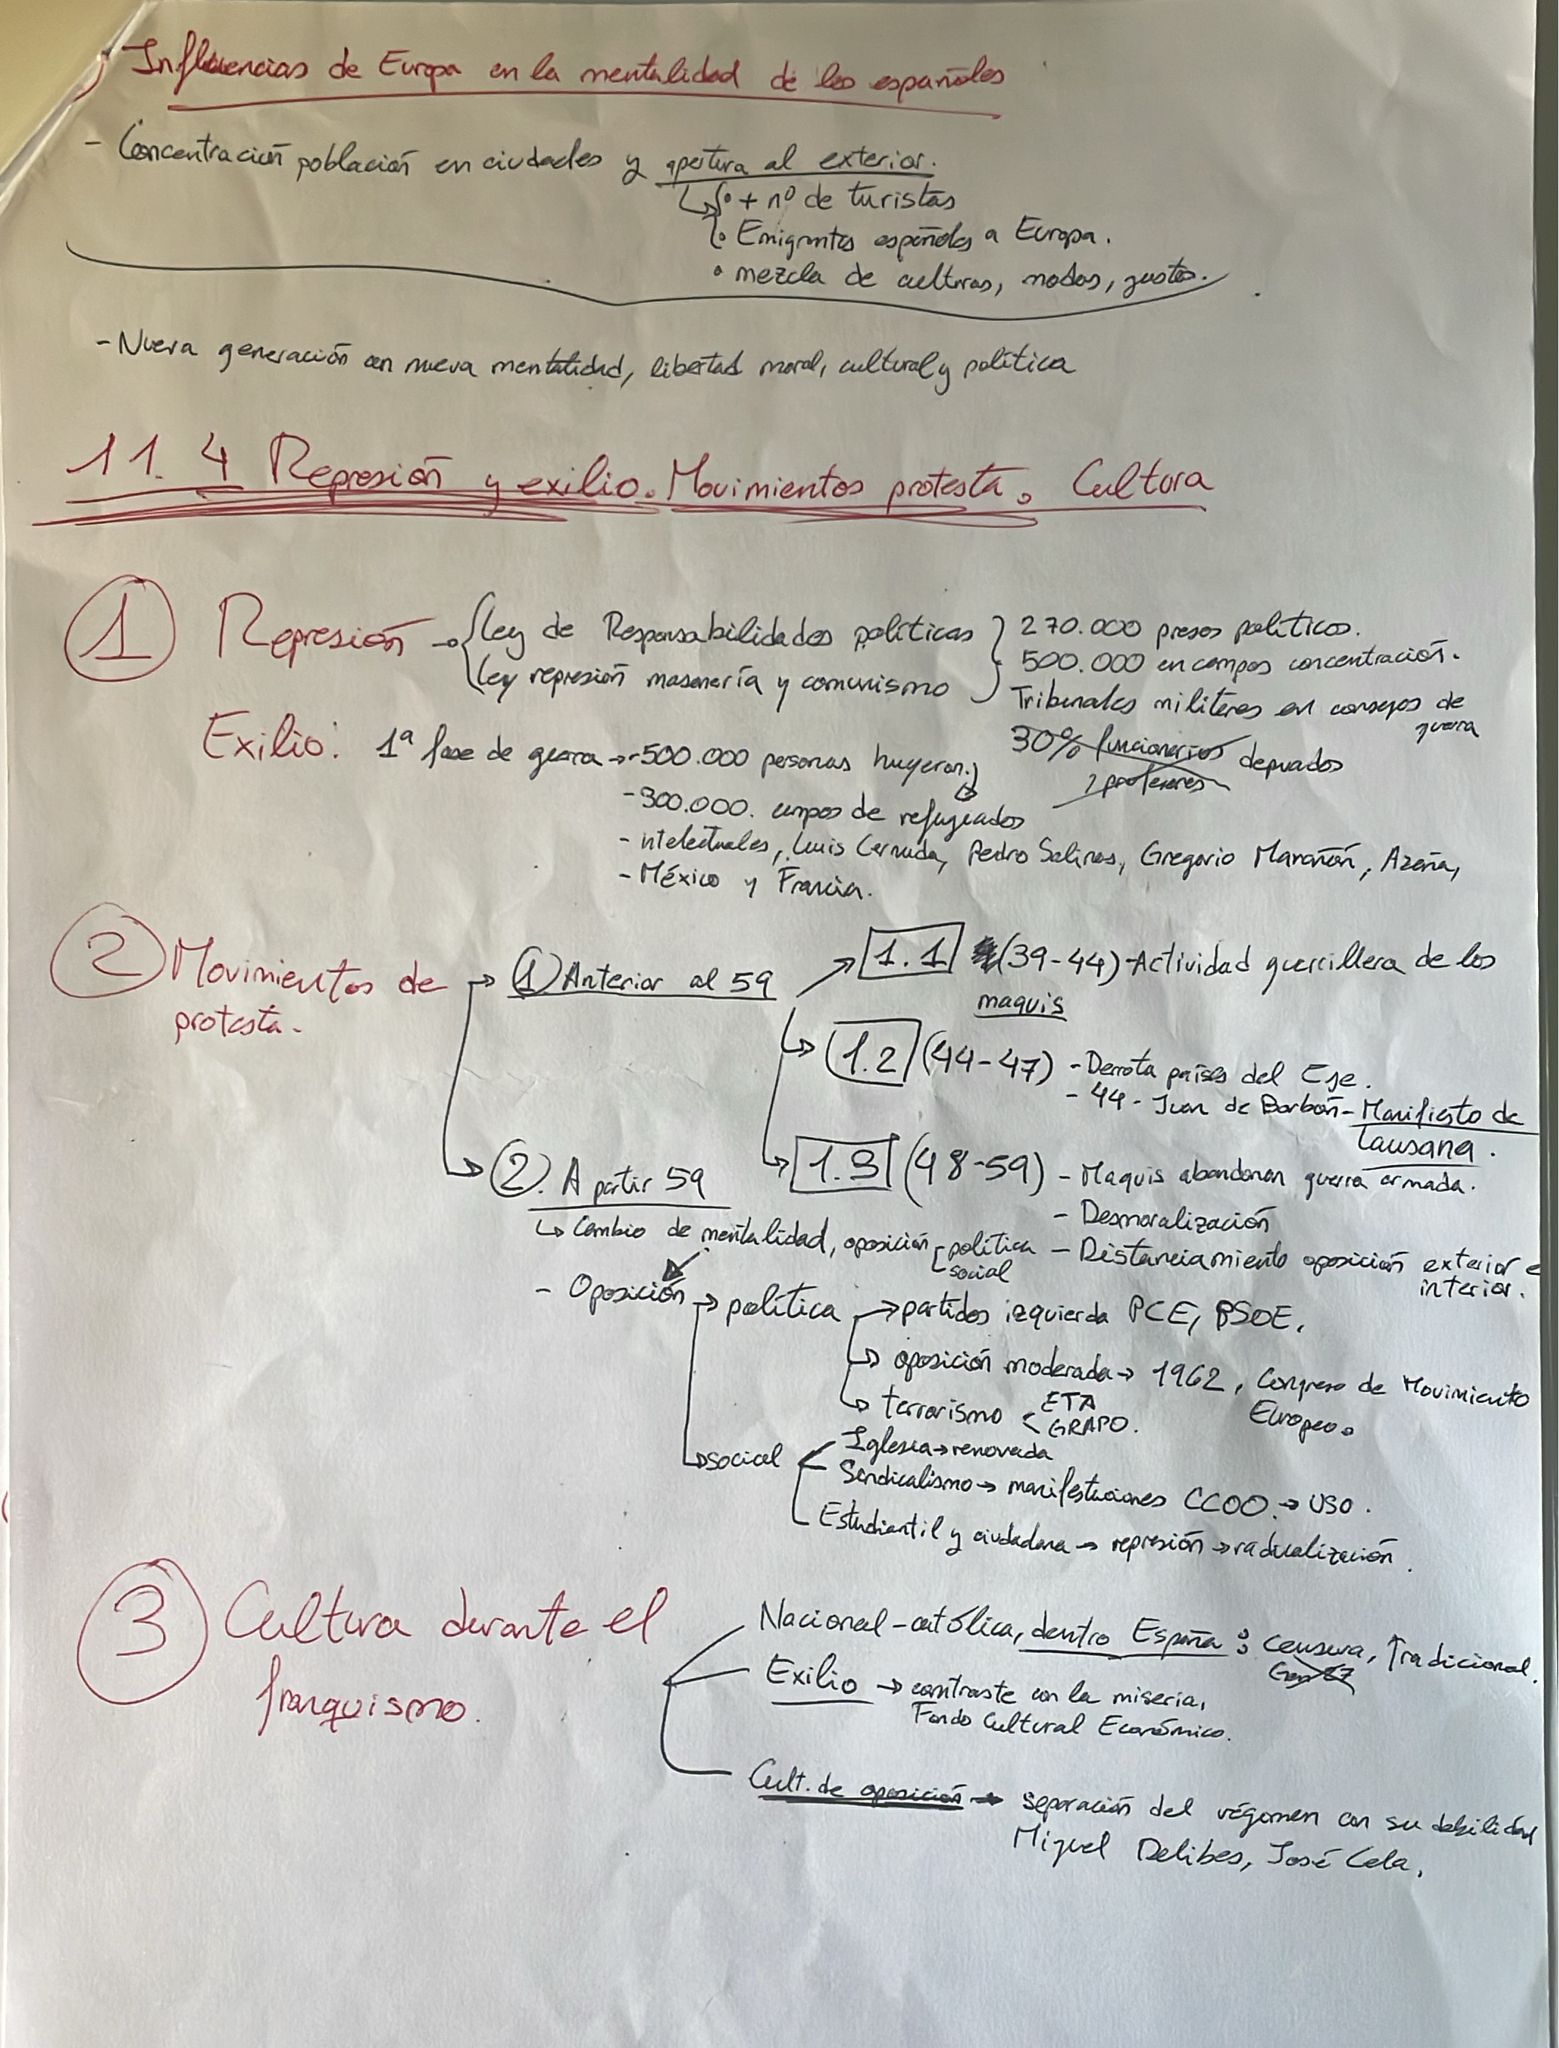 Influencias de Europa en la mentalidad de los españoles
- Concentración población en ciudades y apertura al exterior.
• + nº de turistas
• Emigrantes españoles a Europa.
• mezcla de culturas, modas, gustos.
- Nueva generación con nueva mentalidad, libertad moral, cultural y política
11.4 Represión y exilio. Movimientos protesta. Cultura
1 Represión → { ley de Responsabilidades políticas } 270.000 presos políticos.
ley represión masonería y comunismo
500.000 en campos concentración.
Tribunales militares en consejos de guerra
30% funcionarios depurados
y profesores
Exilio: 1ª fase de guerra → - 500.000 personas huyeron.
- 300.000. campos de refugiados
- intelectuales, Luis Cernuda, Pedro Salinas, Gregorio Marañón, Azaña,
- México y Francia.
2 Movimientos de protesta.
→ 1 Anterior al 59
→ 1.1 (39-44) - Actividad guerrillera de los maquis
→ 1.2 (44-47) - Derrota países del Eje.
- 44 - Juan de Borbón - Manifiesto de Lausana.
→ 1.3 (48-59) - Maquis abandonan guerra armada.
- Desmoralización
- Distanciamiento oposición exterior e interior.
→ 2. A partir 59
↳ Cambio de mentalidad, oposición política
social
- Oposición → política → partidos izquierda PCE, PSOE,
↳ oposición moderada → 1962, Congreso de Movimiento Europeo.
↳ terrorismo < ETA
GRAPO.
↳ social
Iglesia → renovada
Sindicalismo → manifestaciones CCOO. → USO.
Estudiantil y ciudadana → represión → radicalización.
3 Cultura durante el franquismo.
Nacional-católica, dentro España: censura, Tradicional.
Exilio → contraste con la miseria,
Fondo Cultural Económico.
Cult. de oposición → separación del régimen con su debilidad
Miguel Delibes, José Cela,